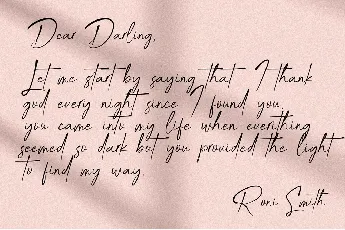 Dear Darling,
Let me start by saying that I thank
god every night since I found you
you came into my life when everithing
seemed so dark but you provided the light
to find my way.
Roni Smith.